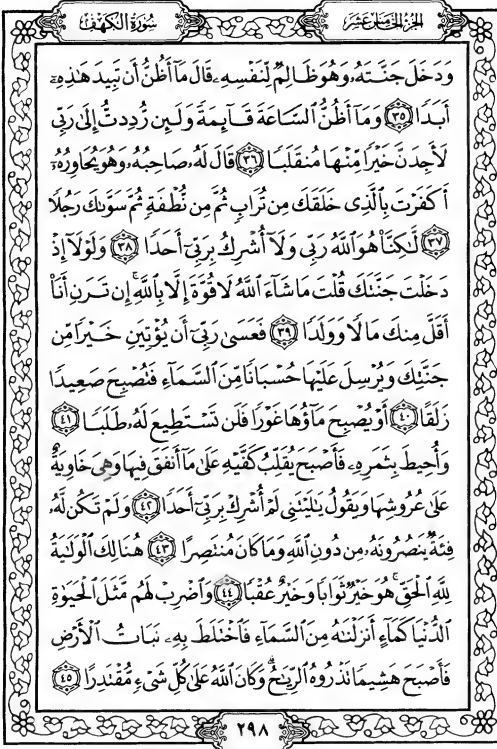 الجزء الخامس عشر
سورة الكهف
وَدَخَلَ جَنَّتَهُۥ وَهُوَ ظَالِمٌ لِّنَفْسِهِۦ قَالَ مَآ أَظُنُّ أَن تَبِيدَ هَٰذِهِۦٓ
أَبَدًا ٣٥ وَمَآ أَظُنُّ ٱلسَّاعَةَ قَآئِمَةً وَلَئِن رُّدِدتُّ إِلَىٰ رَبِّي
لَأَجِدَنَّ خَيْرًا مِّنْهَا مُنقَلَبًا ٣٦ قَالَ لَهُۥ صَاحِبُهُۥ وَهُوَ يُحَاوِرُهُۥٓ
أَكَفَرْتَ بِٱلَّذِي خَلَقَكَ مِن تُرَابٍ ثُمَّ مِن نُّطْفَةٍ ثُمَّ سَوَّىٰكَ رَجُلًا
٣٧ لَّٰكِنَّا۠ هُوَ ٱللَّهُ رَبِّي وَلَآ أُشْرِكُ بِرَبِّيٓ أَحَدًا ٣٨ وَلَوْلَآ إِذْ
دَخَلْتَ جَنَّتَكَ قُلْتَ مَا شَآءَ ٱللَّهُ لَا قُوَّةَ إِلَّا بِٱللَّهِۚ إِن تَرَنِ أَنَا۠
أَقَلَّ مِنكَ مَالًا وَوَلَدًا ٣٩ فَعَسَىٰ رَبِّيٓ أَن يُؤْتِيَنِ خَيْرًا مِّن
جَنَّتِكَ وَيُرْسِلَ عَلَيْهَا حُسْبَانًا مِّنَ ٱلسَّمَآءِ فَتُصْبِحَ صَعِيدًا
زَلَقًا ٤٠ أَوْ يُصْبِحَ مَآؤُهَا غَوْرًا فَلَن تَسْتَطِيعَ لَهُۥ طَلَبًا ٤١
وَأُحِيطَ بِثَمَرِهِۦ فَأَصْبَحَ يُقَلِّبُ كَفَّيْهِ عَلَىٰ مَآ أَنفَقَ فِيهَا وَهِيَ خَاوِيَةٌ
عَلَىٰ عُرُوشِهَا وَيَقُولُ يَٰلَيْتَنِي لَمْ أُشْرِكْ بِرَبِّيٓ أَحَدًا ٤٢ وَلَمْ تَكُن لَّهُۥ
فِئَةٌ يَنصُرُونَهُۥ مِن دُونِ ٱللَّهِ وَمَا كَانَ مُنتَصِرًا ٤٣ هُنَالِكَ ٱلْوَلَٰيَةُ
لِلَّهِ ٱلْحَقِّۚ هُوَ خَيْرٌ ثَوَابًا وَخَيْرٌ عُقْبًا ٤٤ وَٱضْرِبْ لَهُم مَّثَلَ ٱلْحَيَوٰةِ
ٱلدُّنْيَا كَمَآءٍ أَنزَلْنَٰهُ مِنَ ٱلسَّمَآءِ فَٱخْتَلَطَ بِهِۦ نَبَاتُ ٱلْأَرْضِ
فَأَصْبَحَ هَشِيمًا تَذْرُوهُ ٱلرِّيَٰحُۗ وَكَانَ ٱللَّهُ عَلَىٰ كُلِّ شَيْءٍ مُّقْتَدِرًا ٤٥
٢٩٨